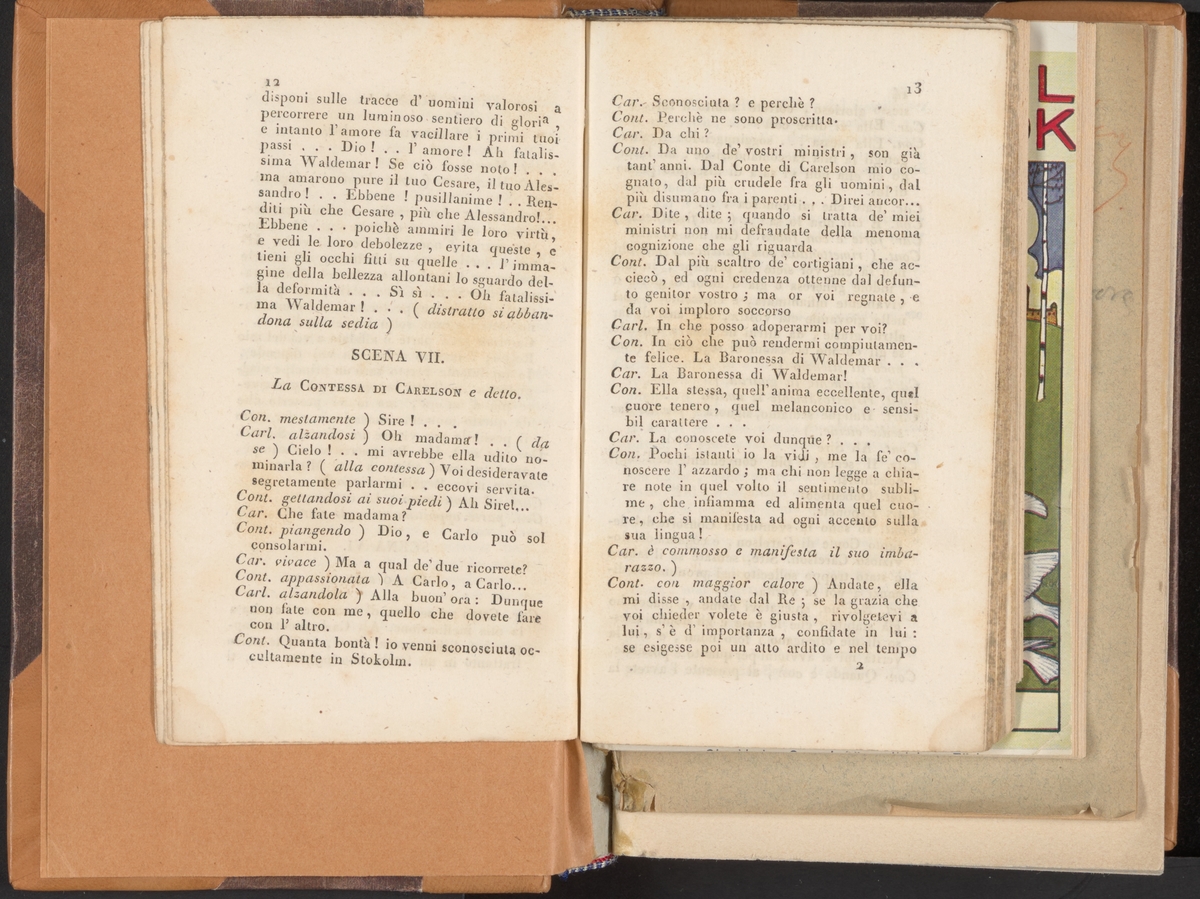 12
disponi sulle tracce d' uomini valorosi a
percorrere un luminoso sentiero di gloria ,
e intanto l'amore fa vacillare i primi tuoi
passi . . . Dio ! . . l' amore! Ah fatalis-
sima Waldemar! Se ciò fosse noto! . . .
ma amarono pure il tuo Cesare, il tuo Ales-
sandro! . . Ebbene ! pusillanime ! . . Ren-
diti più che Cesare , più che Alessandro!...
Ebbene . . . poichè ammiri le loro virtù,
e vedi le loro debolezze , evita queste , e
tieni gli occhi fitti su quelle . . . l' imma-
gine della bellezza allontani lo sguardo del-
la deformità . . . Sì sì . . . Oh fatalissi-
ma Waldemar ! . . . ( distratto si abban-
dona sulla sedia )
SCENA VII.
La CONTESSA DI CARELSON e detto.
Con. mestamente ) Sire ! . . .
Carl. alzandosi ) Oh madama! . . ( da
se ) Cielo ! . . mi avrebbe ella udito no-
minarla ? ( alla contessa ) Voi desideravate
segretamente parlarmi . . eccovi servita.
Cont. gettandosi ai suoi piedi ) Ah Sire!...
Car. Che fate madama?
Cont. piangendo ) Dio, e Carlo può sol
consolarmi.
Car. vivace ) Ma a qual de' due ricorrete?
Cont. appassionata ) A Carlo, a Carlo...
Carl. alzandola ) Alla buon' ora : Dunque
non fate con me, quello che dovete fare
con l' altro.
Cont. Quanta bontà ! io venni sconosciuta oc-
cultamente in Stokolm.
13
Car. Sconosciuta ? e perchè ?
Cont. Perchè ne sono proscritta.
Car. Da chi ?
Cont. Da uno de' vostri ministri , son già
tant' anni. Dal Conte di Carelson mio co-
gnato, dal più crudele fra gli uomini, dal
più disumano fra i parenti . . . Direi ancor...
Car. Dite , dite ; quando si tratta de' miei
ministri non mi defraudate della menoma
cognizione che gli riguarda
Cont. Dal più scaltro de' cortigiani, che ac-
ciecò , ed ogni credenza ottenne dal defun-
to genitor vostro ; ma or voi regnate, e
da voi imploro soccorso
Carl. In che posso adoperarmi per voi?
Con. In ciò che può rendermi compiutamen-
te felice. La Baronessa di Waldemar . . .
Car. La Baronessa di Waldemar!
Con. Ella stessa, quell'anima eccellente, quel
cuore tenero , quel melanconico e sensi-
bil carattere . . .
Car. La conoscete voi dunque ? . . .
Con. Pochi istanti io la vidi , me la fe' co-
noscere l' azzardo ; ma chi non legge a chia-
re note in quel volto il sentimento subli-
me , che infiamma ed alimenta quel cuo-
re , che si manifesta ad ogni accento sulla
sua lingua !
Car. è commosso e manifesta il suo imba-
razzo. )
Cont. con maggior calore ) Andate, ella
mi disse , andate dal Re ; se la grazia che
voi chieder volete è giusta , rivolgetevi a
lui , s' è d' importanza , confidate in lui :
se esigesse poi un atto ardito e nel tempo
2
L
OK